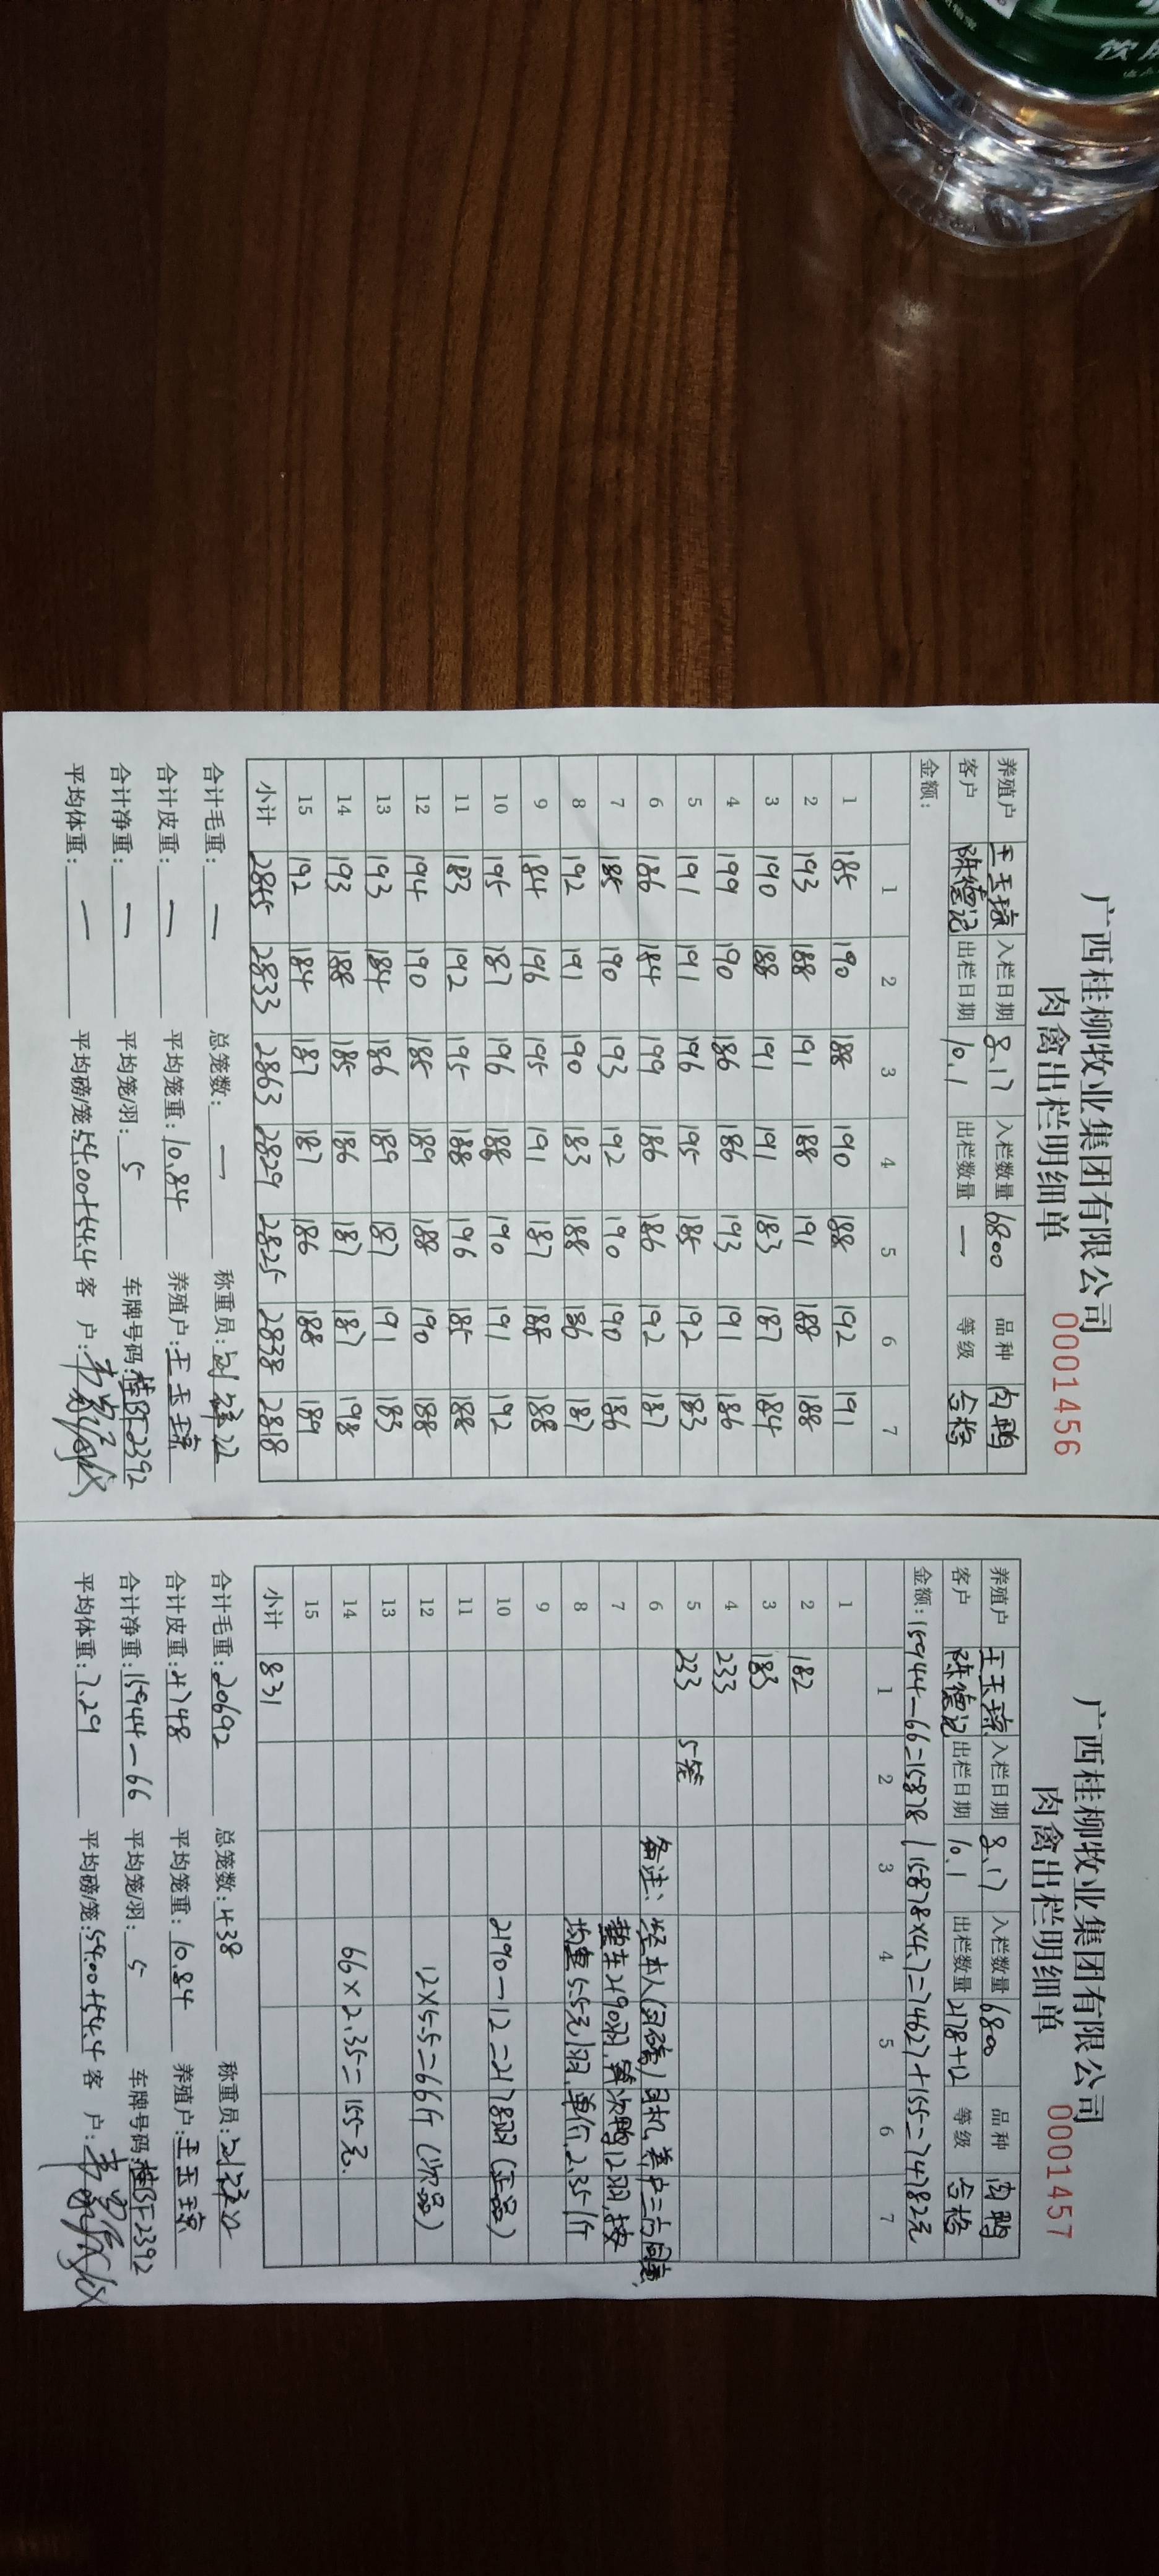 饮
广西桂柳牧业集团有限公司
肉禽出栏明细单
0001456
养殖户 王玉琼 入栏日期 8.17 入栏数量 6800 品种 肉鸭
客户 陈德记 出栏日期 10.1 出栏数量 — 等级 合格
金额:
1 2 3 4 5 6 7
1 185 190 188 190 188 192 191
2 193 188 191 188 191 188 188
3 190 188 191 191 183 187 184
4 199 190 186 186 193 191 186
5 191 191 196 195 185 192 183
6 186 184 199 186 186 192 187
7 185 190 193 192 190 190 186
8 192 191 190 183 188 186 187
9 184 196 195 191 187 188 188
10 195 187 196 188 190 191 192
11 183 192 195 188 196 185 188
12 194 190 185 189 188 190 188
13 193 184 186 189 187 191 183
14 193 188 185 186 187 187 198
15 192 184 187 187 186 188 189
小计 2855 2833 2863 2829 2825 2838 2818
合计毛重: — 总笼数: — 称重员:
合计皮重: — 平均笼重: 10.84 养殖户: 王玉琼
合计净重: — 平均笼/羽: 5 车牌号码: 桂BF2392
平均体重: — 平均磅/笼: 54.00+44.4 客 户:
广西桂柳牧业集团有限公司
肉禽出栏明细单
0001457
养殖户 王玉琼 入栏日期 8.17 入栏数量 6800 品种 肉鸭
客户 陈德记 出栏日期 10.1 出栏数量 2178+12 等级 合格
金额: 15944-66=15878 15878×4.7=74627+155=74782元
1 2 3 4 5 6 7
1
2 182
3 183
4 233
5 233 5笼
6 备注: 经本人(同磅)司机 养户三方同意,
7 整车2190羽, 算次鸭12羽, 按
8 均重5.5元/羽, 单价2.35/斤
9
10 2190-12=2178羽(正品)
11
12 12×5.5=66斤(次品)
13
14 66×2.35=155元.
15
小计 831
合计毛重: 20692 总笼数: 438 称重员:
合计皮重: 4748 平均笼重: 10.84 养殖户: 王玉琼
合计净重: 15944-66 平均笼/羽: 5 车牌号码: 桂BF2392
平均体重: 7.29 平均磅/笼: 客 户: